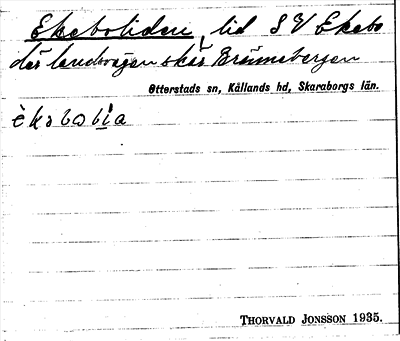 Ekeboliden, lid S V Ekebo
där landsvägen skär Brännebergen
Otterstads sn, Kållands hd, Skaraborgs län.
èkəbəlìa
THORVALD JONSSON 1935.